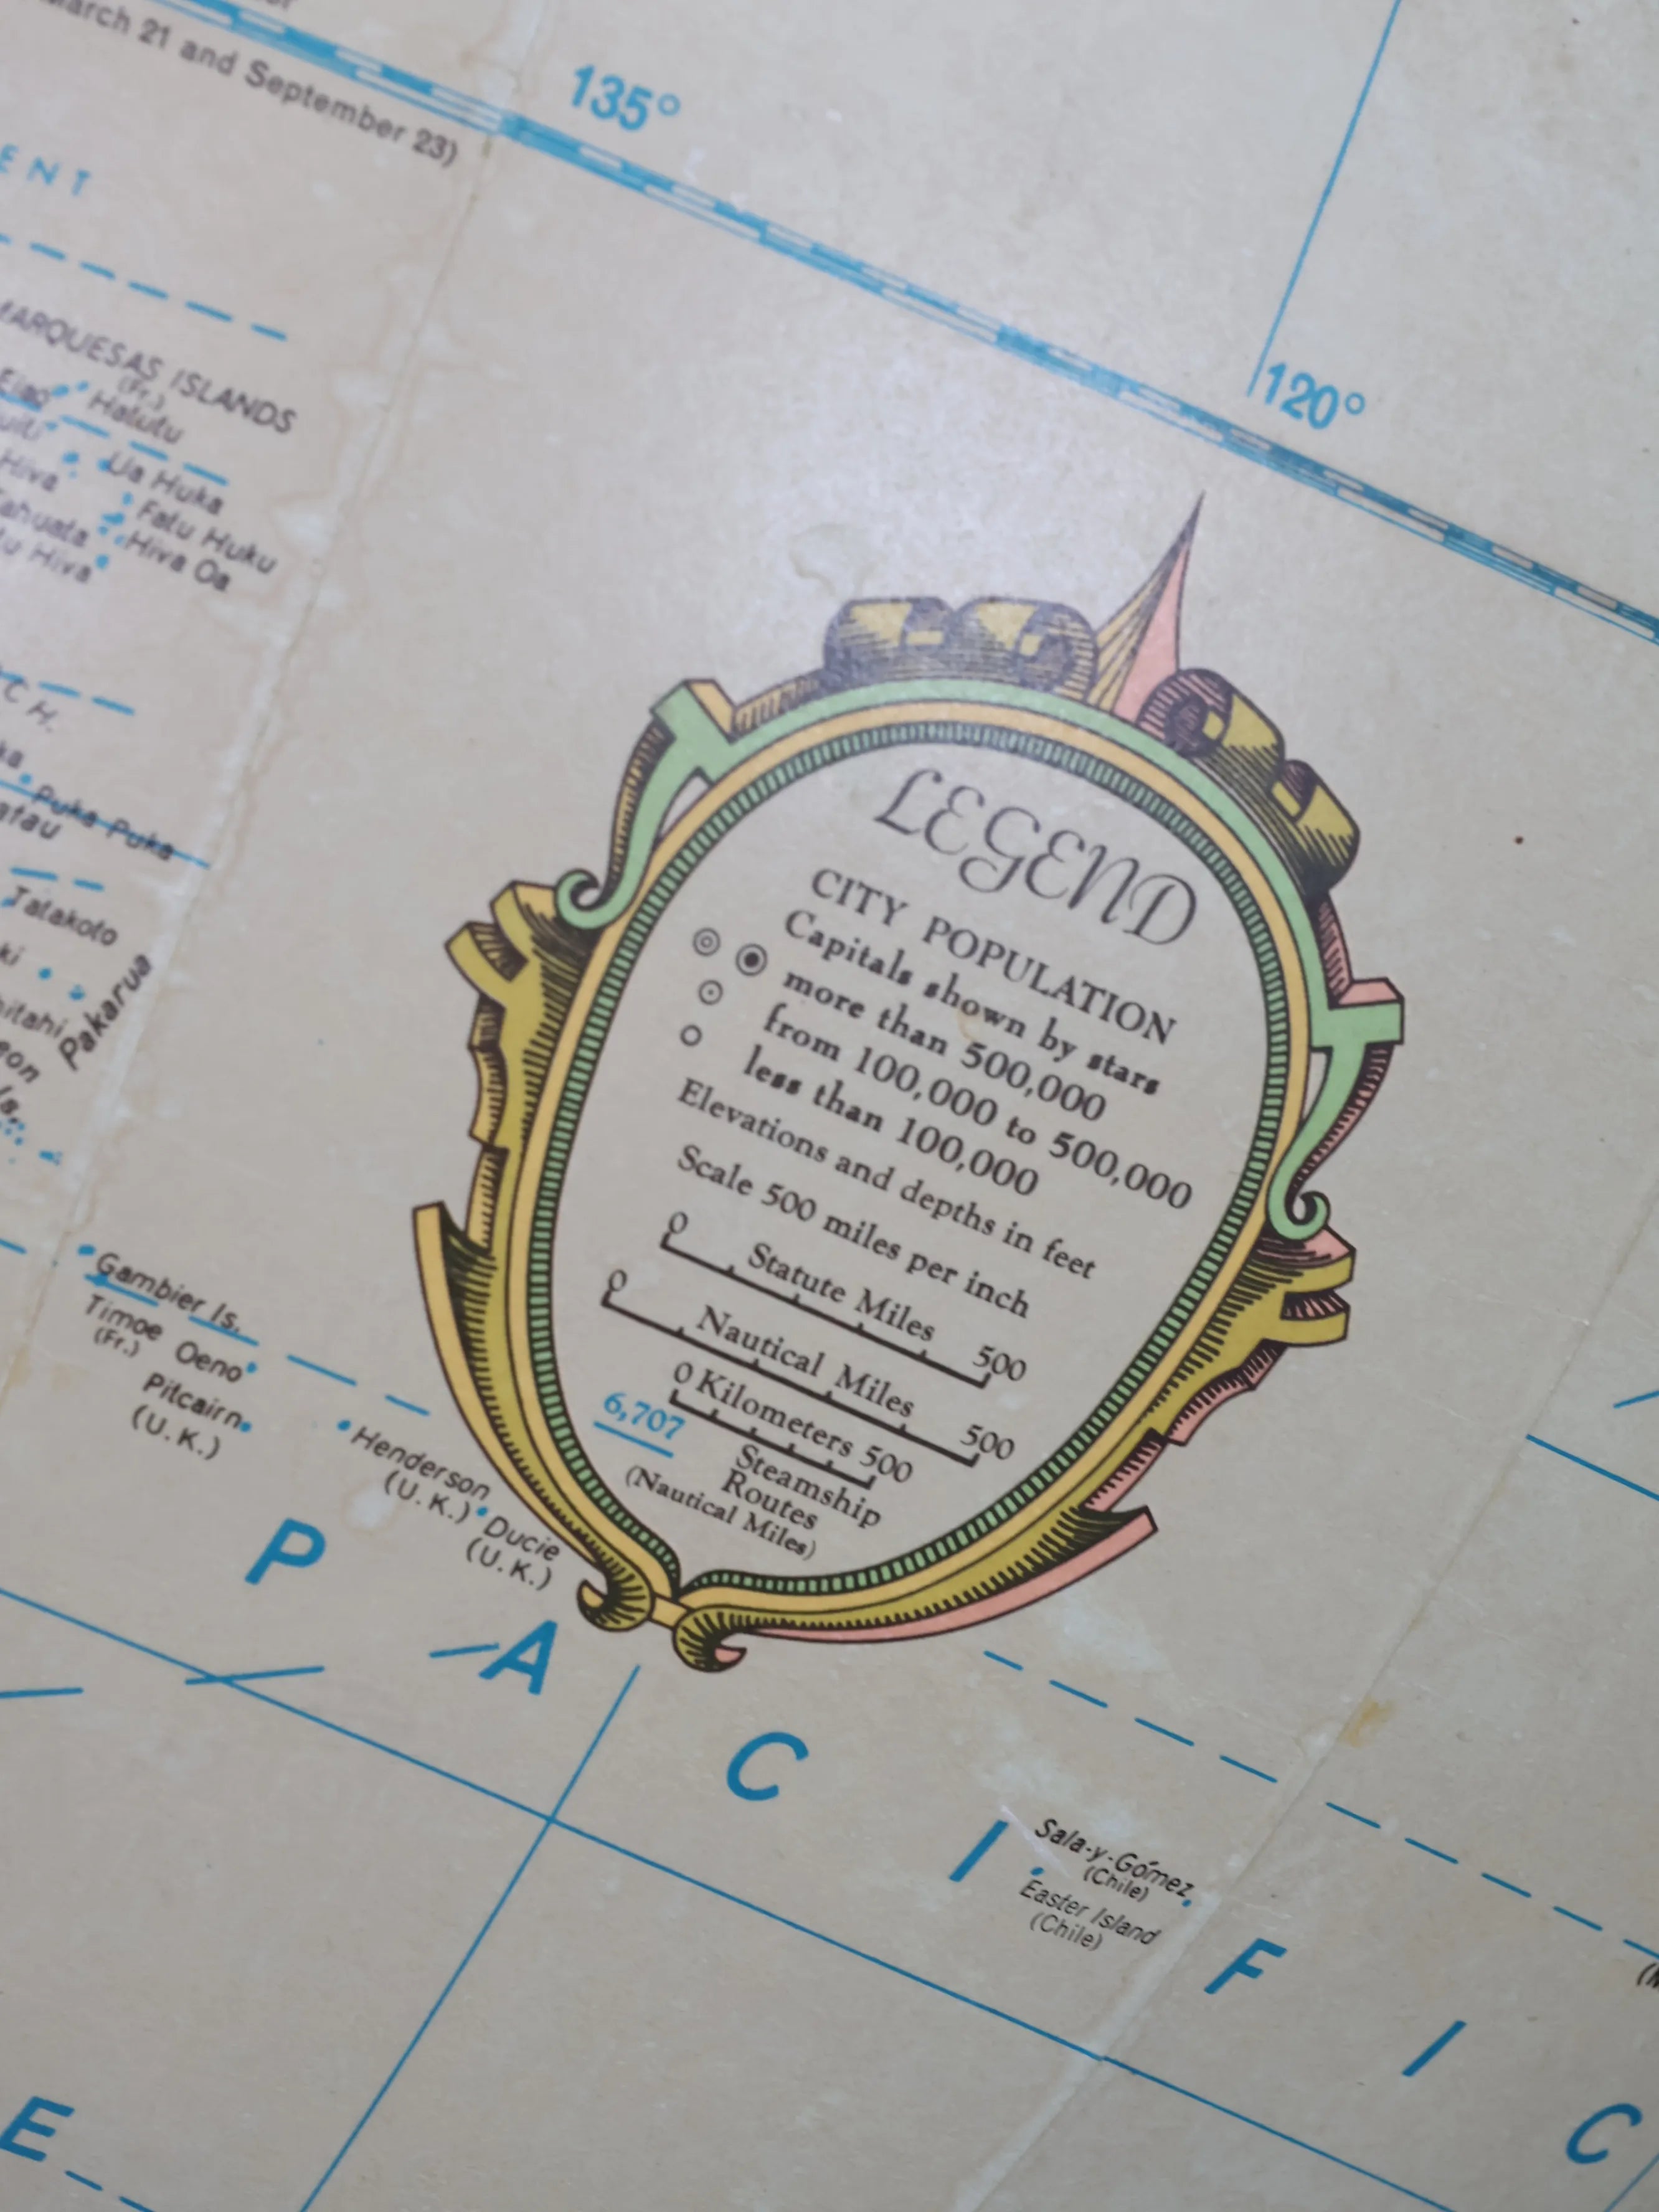 March 21 and September 23)
135°
120°
MARQUESAS ISLANDS
(Fr.)
Eiao
Hatutu
Hiva
Ua Huka
Fatu Huku
Tahuata
Hiva Oa
Hiva
Puka Puka
Tatakoto
Pakarua
LEGEND
CITY POPULATION
Capitals shown by stars
more than 500,000
from 100,000 to 500,000
less than 100,000
Elevations and depths in feet
Scale 500 miles per inch
0 Statute Miles 500
0 Nautical Miles 500
0 Kilometers 500
6,707 Steamship
Routes
(Nautical Miles)
Gambier Is.
Timoe
(Fr.)
Oeno
Pitcairn
(U.K.)
Henderson
(U.K.)
Ducie
(U.K.)
PACIFIC
Sala-y-Gómez
(Chile)
Easter Island
(Chile)
E